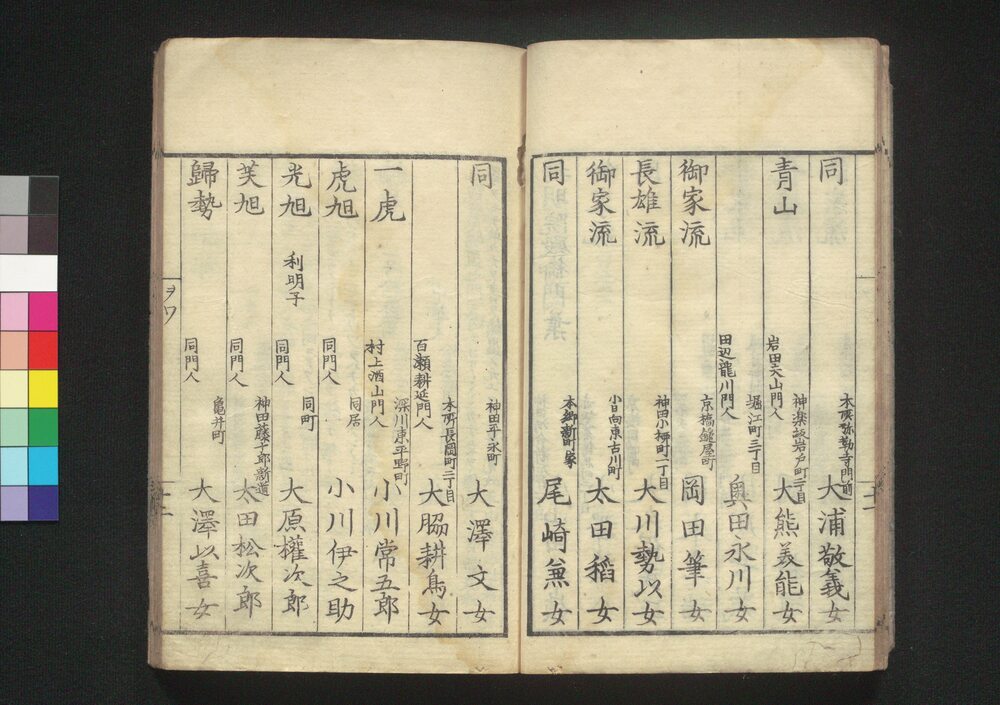 同 本所弥勒寺門前 大浦敬義女
青山 岩田大山門人 神楽坂岩戸町二丁目 大熊美能女
田辺龍川門人 堀江町三丁目 奥田永川女
御家流 京橋鑓屋町 岡田筆女
長雄流 神田小柳町一丁目 大川勢以女
御家流 小日向東古川町 太田稲女
同 本郷 尾崎兼女
同 神田平永町 大澤文女
百瀬耕延門人 本所長岡町二丁目 大脇耕鳥女
一虎 村上酒山門人 深川東平野町 小川常五郎
虎旭 同門人 同居 小川伊之助
光旭 利明子 同門人 同町 大原權次郎
芙旭 同門人 神田藤十郎新道 太田松次郎
歸勢 同門人 亀井町 大澤以喜女
ヲワ
十二